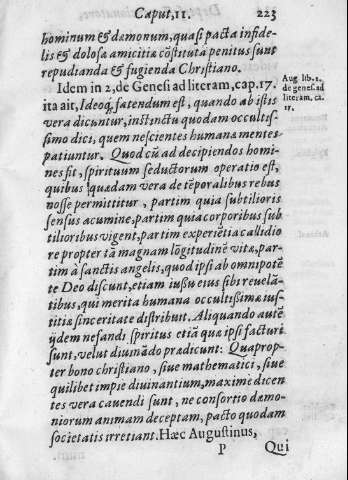 Caput, 11. 223
hominum & dæmonum, quasi pacta infide-
lis & dolosa amicitia cōstituta penitus sunt
repudianda & fugienda Christiano.
Idem in 2, de Genesi ad literam, cap. 17.
ita ait, Ideoq; fatendum est, quando ab istis
vera dicuntur, instinctu quodam occultis-
simo dici, quem nescientes humanæ mentes
patiuntur. Quod cū ad decipiendos homi-
nes fit, spirituum seductorum operatio est,
quibus quædam vera de tēporalibus rebus
nosse permittitur, partim quia subtilioris
sensus acumine, partim quia corporibus sub
tilioribus vigent, partim experiētia callidio
re propter tā magnam lōgitudinē vitæ, par-
tim à sanctis angelis, quod ipsi ab omnipotē
te Deo discunt, etiam iussu eius sibi reuelā-
tibus, qui merita humana occultißimæ ius-
titiæ sinceritate distribuit. Aliquando autē
ijdem nefandi spiritus etiā quæ ipsi facturi
sunt, velut diuinādo prædicunt: Quaprop-
ter bono christiano, siue mathematici, siue
quilibet impie diuinantium, maximè dicen
tes vera cauendi sunt, ne consortio dæmo-
niorum animam deceptam, pacto quodam
societatis irretiant. Hæc Augustinus,
P Qui
Aug. lib. 2.
de genes. ad
literam, ca.
17.